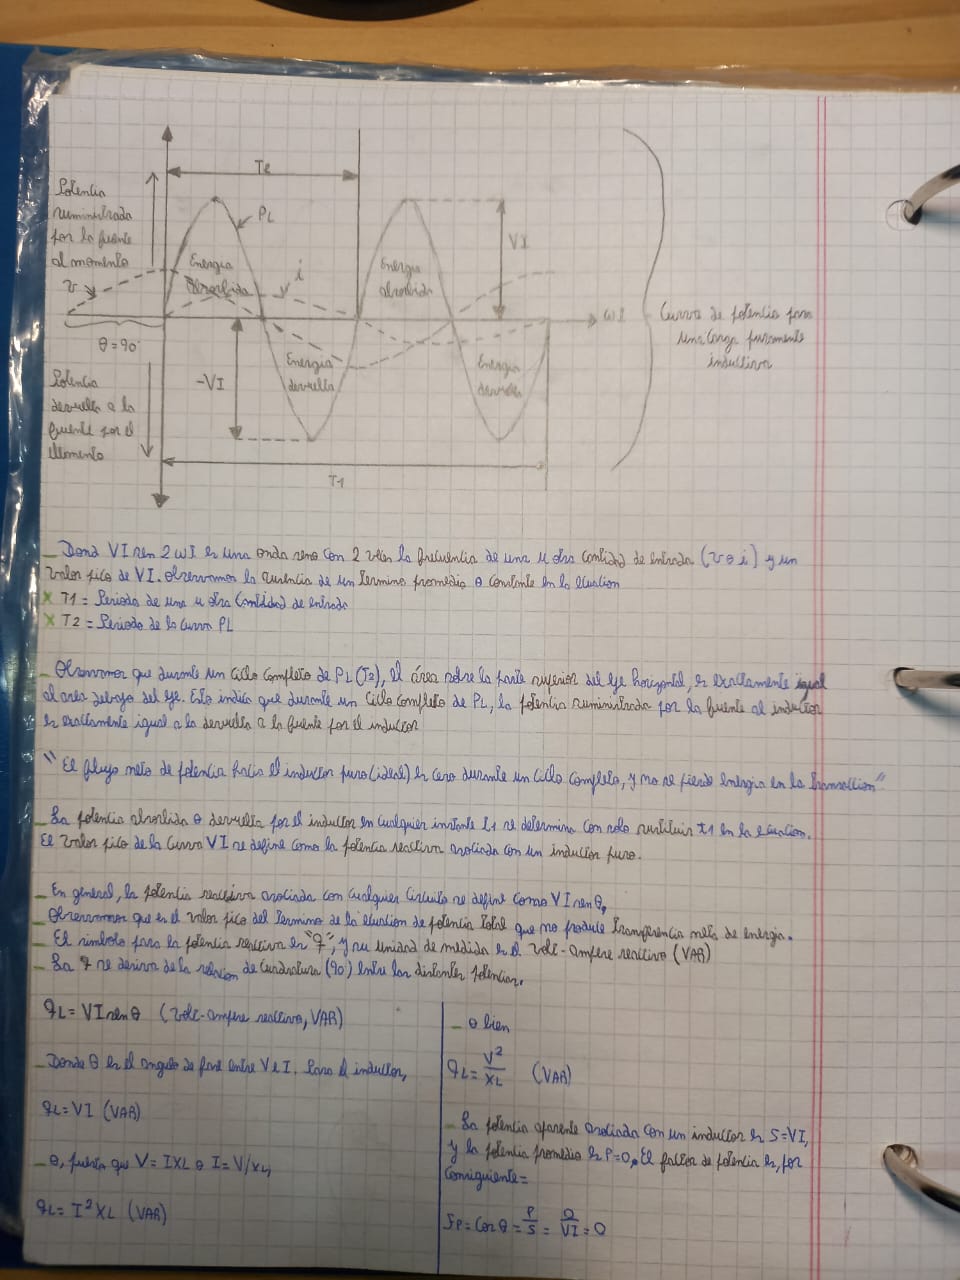 T2
Potencia
suministrada
por la fuente
al momento
PL
VI
Energia
absorbida
i
Energia
absorbida
v
ωt
θ=90
Curva de potencia para
una carga puramente
inductiva
Energia
devuelta
Energia
devuelta
-VI
Potencia
devuelta a la
fuente por el
elemento
T1
_ Dond VI sen 2 ωt es una onda seno con 2 veces la frecuencia de una u otra cantidad de entrada (v o i) y un
valor pico de VI. observamos la ausencia de un termino promedio o constante en la ecuacion
x T1 = Periodo de una u otra cantidad de entrada
x T2 = Periodo de la curva PL
_ Observamos que durante un ciclo completo de PL (T2), el área sobre la parte superior del eje horizontal, es exactamente igual
al area debajo del eje. Esto indica que durante un ciclo completo de PL, la potencia suministrada por la fuente al inductor
es exactamente igual a la devuelta a la fuente por el inductor
"El flujo neto de potencia hacia el inductor puro (ideal) es cero durante un ciclo completo, y no se pierde energia en la transaccion"
_ La potencia absorbida o devuelta por el inductor en cualquier instante t1 se determina con solo sustituir t1 en la ecuacion.
El valor pico de la curva VI se define como la potencia reactiva asociada con un inductor puro.
_ En general, la potencia reactiva asociada con cualquier circuito se define como VI sen θ,
_ Observamos que es el valor pico del termino de la ecuacion de potencia total que no produce transferencia neta de energia.
_ El simbolo para la potencia reactiva es "q", y su unidad de medida es el volt-ampere reactivo (VAR)
_ La q se deriva de la relacion de cuadratura (90°) entre las distintas potencias.
qL = VI sen θ (volt-ampere reactivo, VAR)
_ Donde θ es el angulo de fase entre V e I. Para el inductor,
qL = VI (VAR)
_ o, puesto que V = IXL o I = V/XL,
qL = I² XL (VAR)
_ o bien
qL = V²/XL (VAR)
_ La potencia aparente asociada con un inductor es S=VI,
y la potencia promedio es P=0. El factor de potencia es, por
consiguiente=
FP = Cos θ = P/S = 0/VI = 0